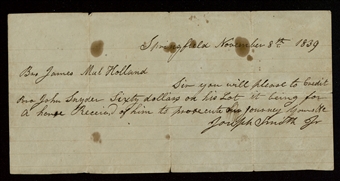 Springfield November 8th 1839
Bro James Mulholland
Sir you will please to Credit
Bro John Snyder Sixty dollars on his Lot it being for
a horse Received of him to prosecute my Journey Yours &c
Joseph Smith Jr